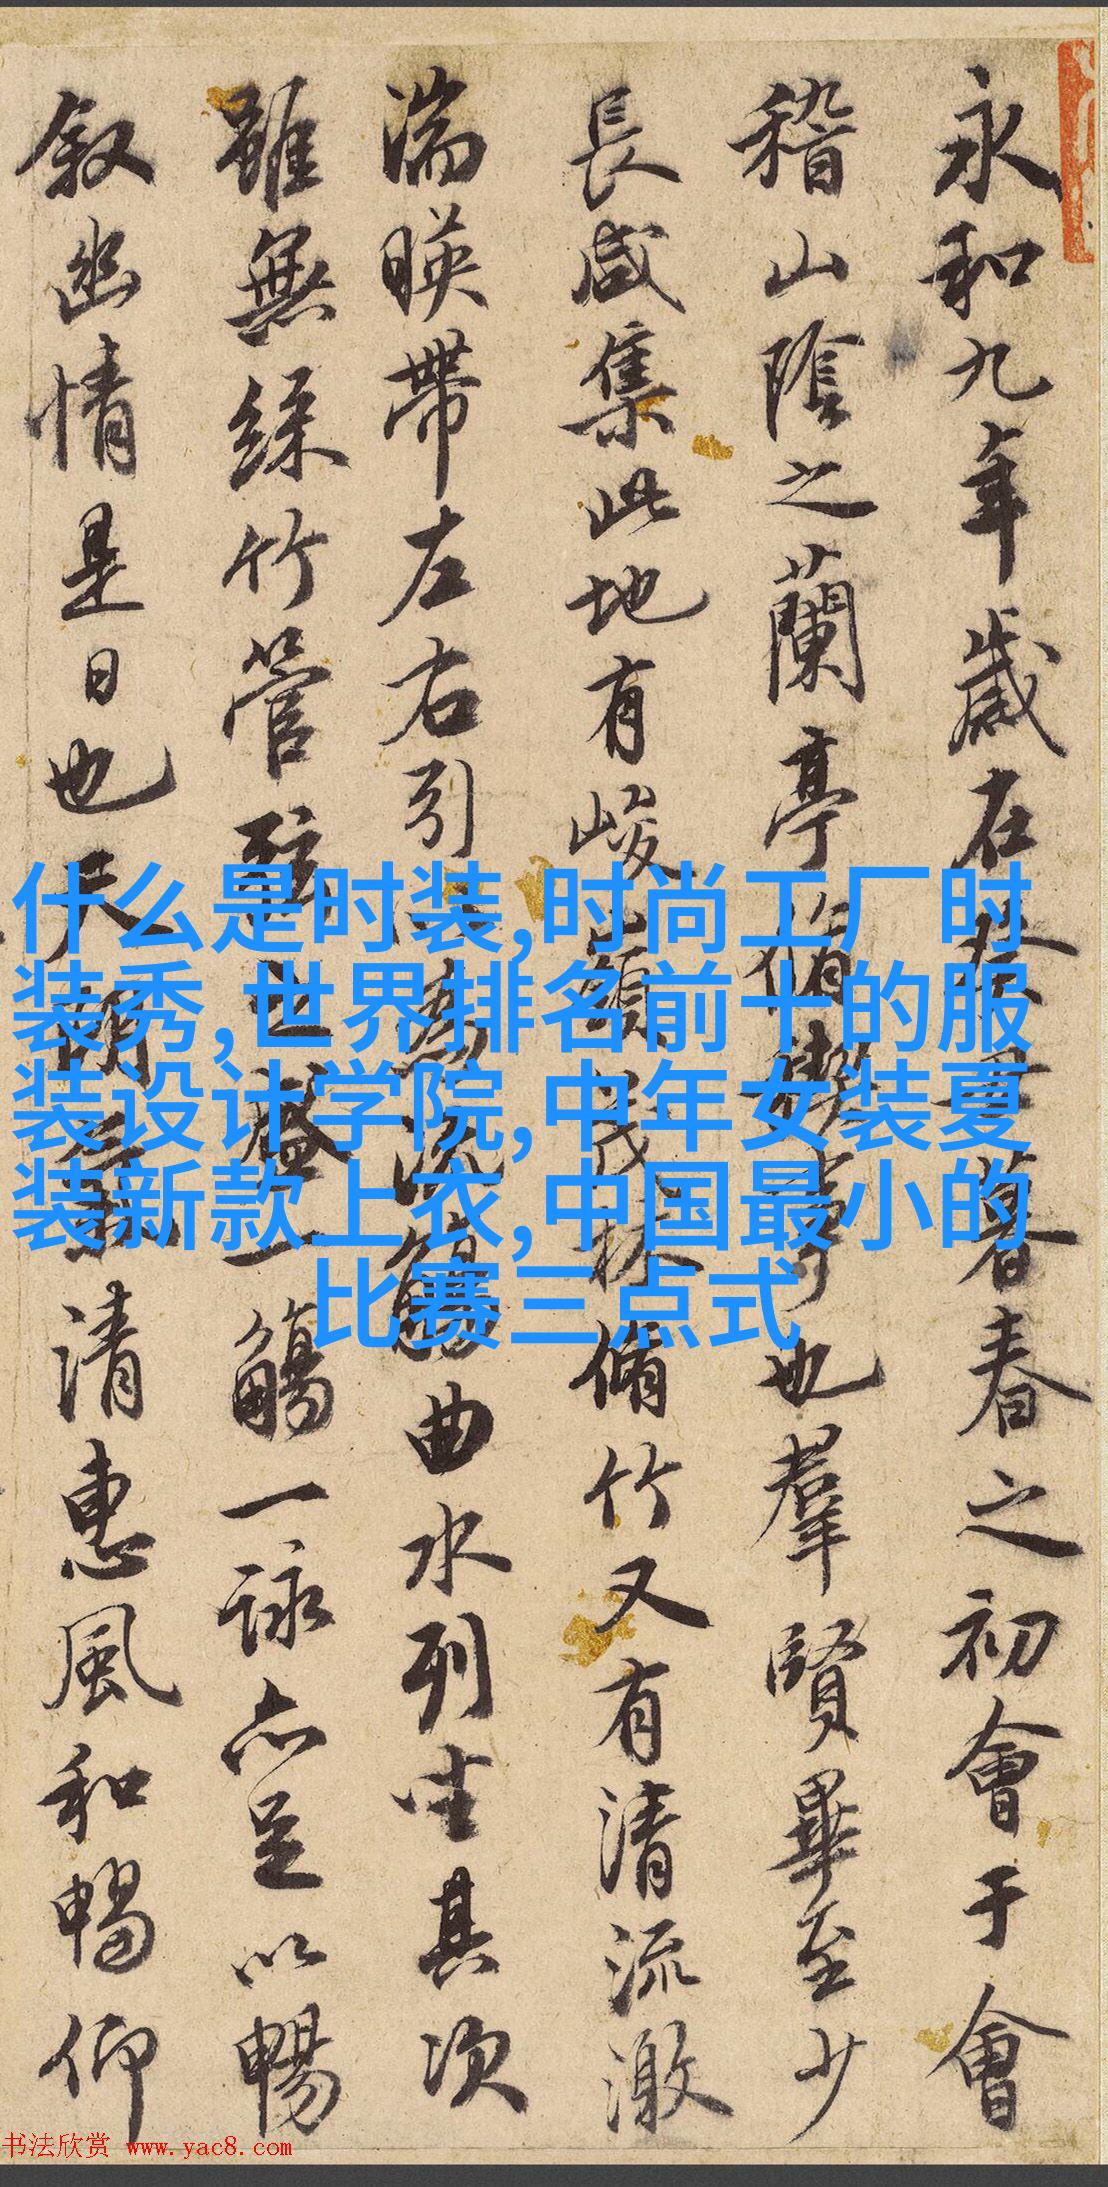 永和九年歲在癸丑暮春之初會于會
稽山陰之蘭亭脩禊事也羣賢畢至少
長咸集此地有峻領茂林脩竹又有清流激
湍暎帶左右引以為流觴曲水列坐其次
雖無絲竹管弦之盛一觴一詠亦足以暢
叙幽情是日也天朗氣清惠風和暢仰
什么是时装,时尚工厂时
装秀,世界排名前十的服
装设计学院,中年女装夏
装新款上衣,中国最小的
比赛三点式
书法欣赏 www.yac8.com